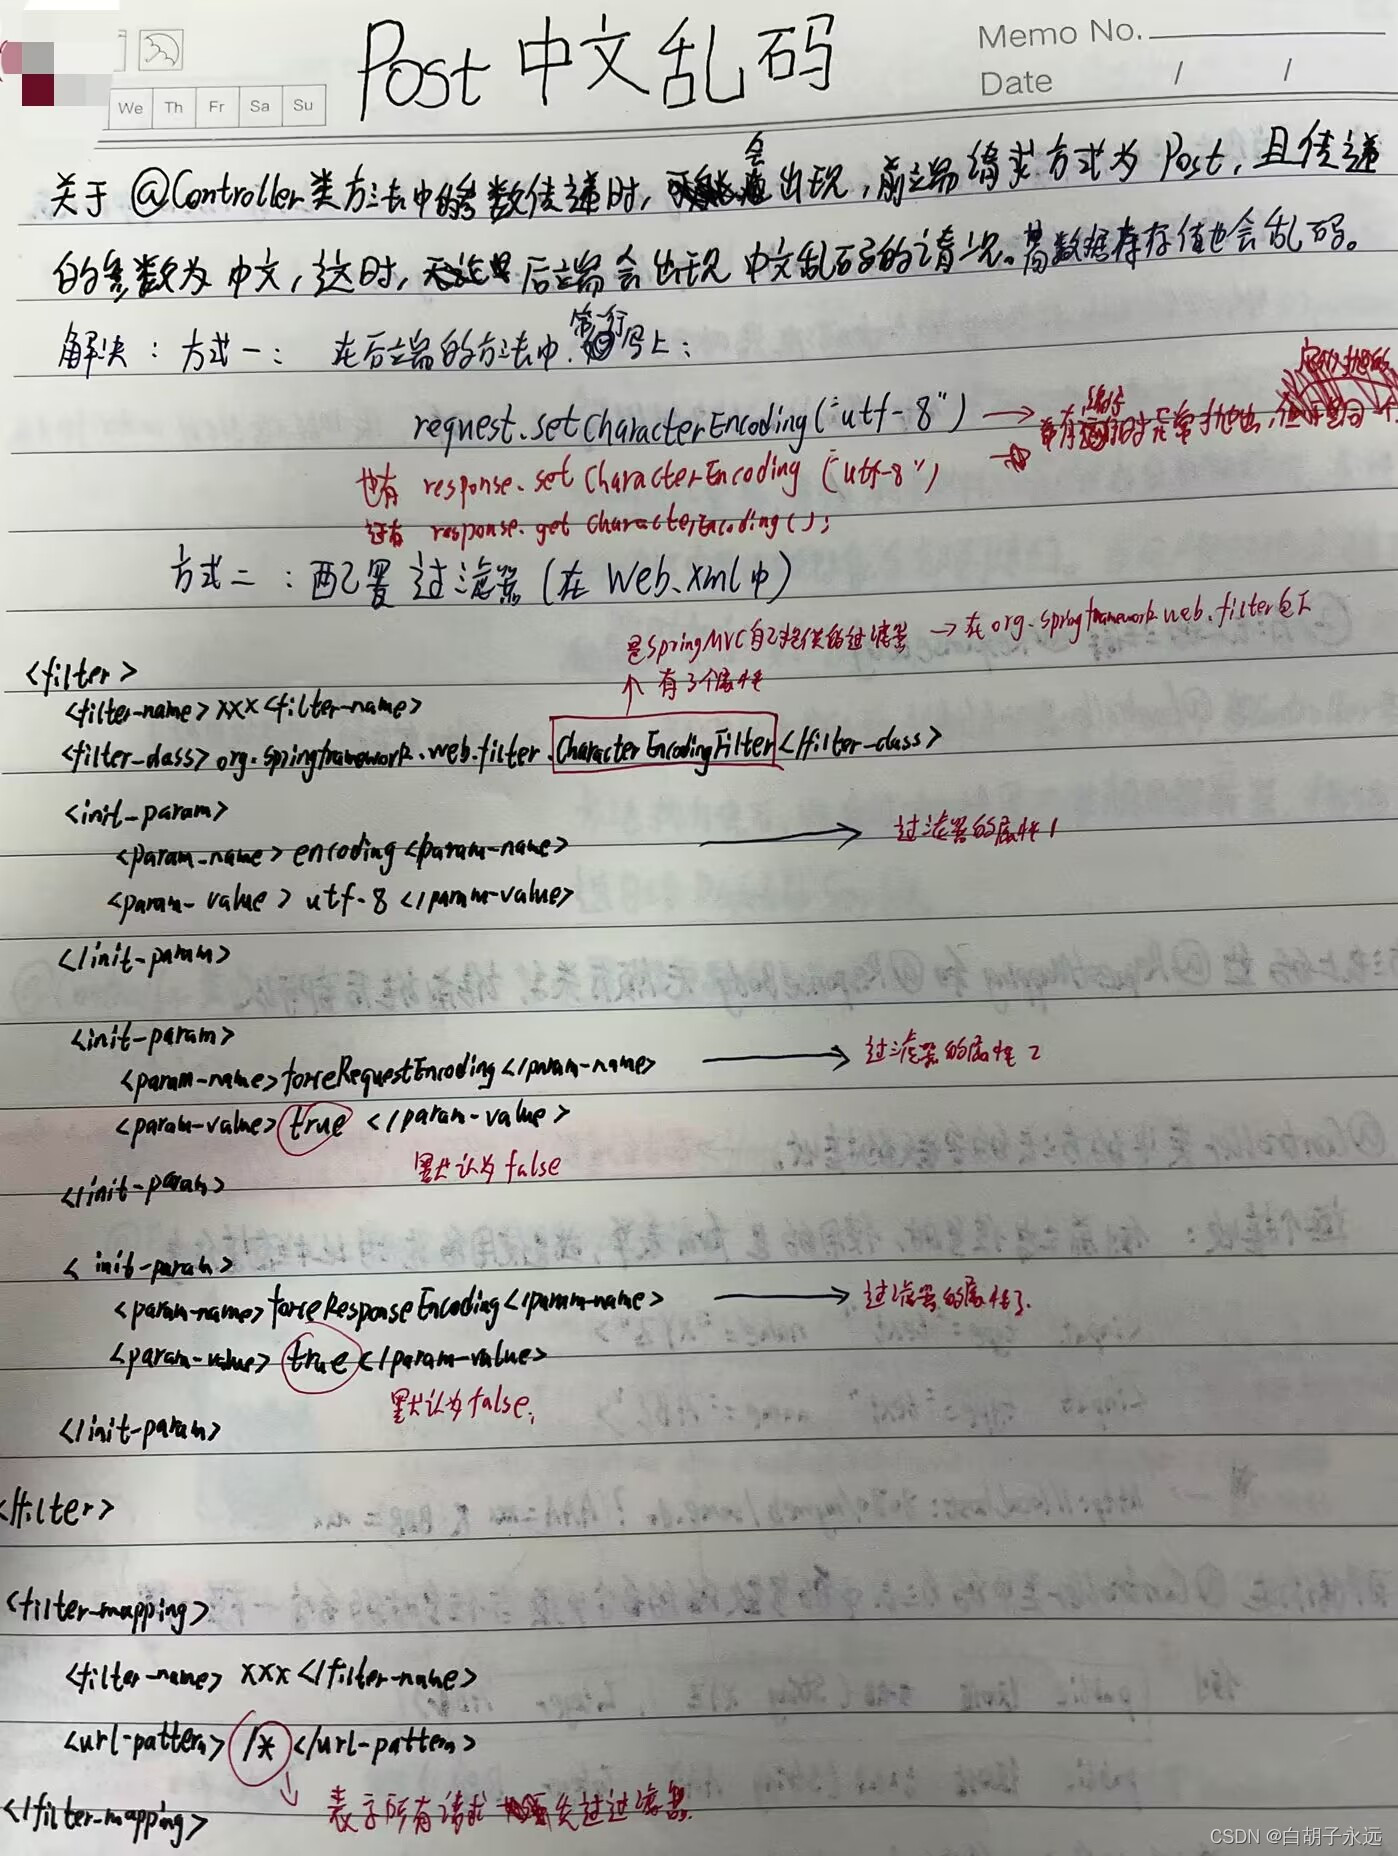 Memo No.
Date / /
We Th Fr Sa Su
Post 中文乱码
关于 @Controller类方法中的参数传递时, 会出现, 前端请求方式为 Post, 且传递
的参数为中文, 这时, 后端会出现中文乱码的情况。 数据库存值也会乱码。
解决: 方式一: 在后端的方法中 第一行 写上:
request.setCharacterEncoding("utf-8") →
也有 response.setCharacterEncoding ("utf-8")
还有 response.getCharacterEncoding();
方式二: 配置过滤器 (在 Web.xml中)
是SpringMVC自己提供的过滤器 → 在 org.springframework.web.filter包下
↑ 有3个属性
<filter>
<filter-name> xxx <filter-name>
<filter-class> org.springframework.web.filter.CharacterEncodingFilter</filter-class>
<init-param>
<param-name> encoding <param-name> → 过滤器的属性1
<param-value> utf-8 </param-value>
</init-param>
<init-param>
<param-name> forceRequestEncoding </param-name> → 过滤器的属性2
<param-value> true </param-value>
默认为 false
</init-param>
<init-param>
<param-name> forceResponseEncoding </param-name> → 过滤器的属性3.
<param-value> true </param-value>
默认为false;
</init-param>
</filter>
<filter-mapping>
<filter-name> xxx </filter-name>
<url-pattern> /* </url-pattern>
表示所有请求 先过过滤器.
</filter-mapping>
CSDN @白胡子永远